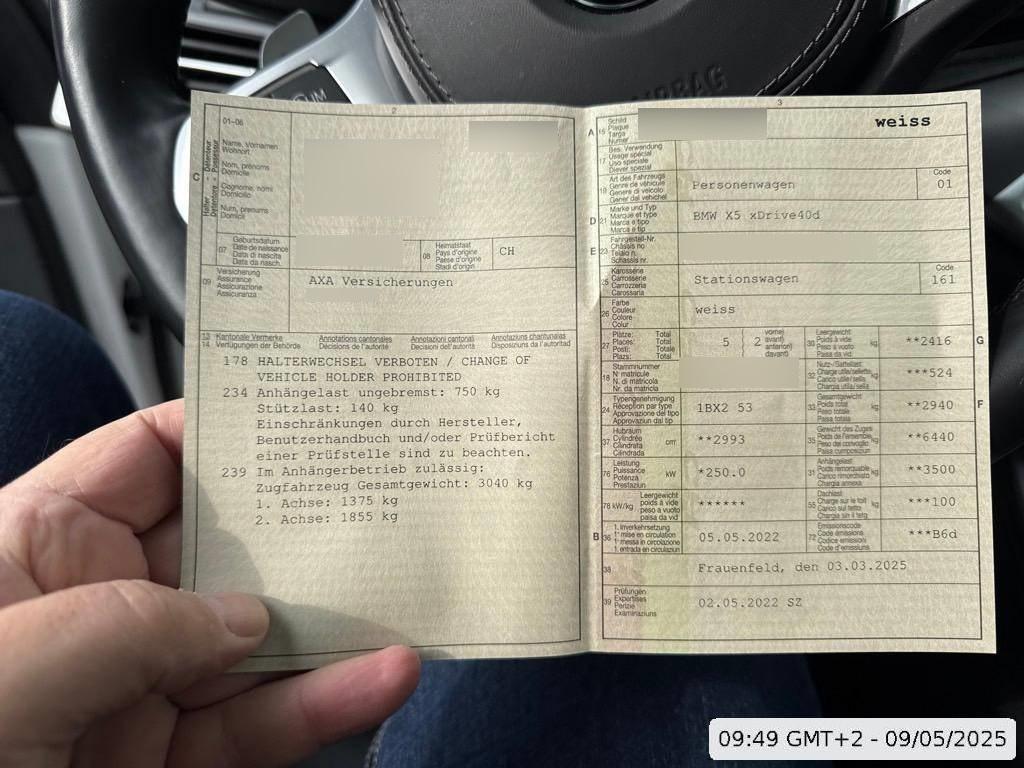 AIRBAG
2
01-06
Halter - Détenteur
Detentore - Possessor
C
Name, Vornamen
Wohnort
Nom, prénoms
Domicile
Cognome, nomi
Domicilio
Num, prenums
Domicil
07
Geburtsdatum
Date de naissance
Data di nascita
Data da nasch.
08
Heimatstaat
Pays d'origine
Paese d'origine
Stadi d'origin
CH
09
Versicherung
Assurance
Assicurazione
Assicuranza
AXA Versicherungen
13
14
Kantonale Vermerke
Verfügungen der Behörde
Annotations cantonales
Décisions de l'autorité
Annotazioni cantonali
Decisioni dell'autorità
Annotaziuns chantunalas
Disposiziuns da l'autoritad
178 HALTERWECHSEL VERBOTEN / CHANGE OF
VEHICLE HOLDER PROHIBITED
234 Anhängelast ungebremst: 750 kg
Stützlast: 140 kg
Einschränkungen durch Hersteller,
Benutzerhandbuch und/oder Prüfbericht
einer Prüfstelle sind zu beachten.
239 Im Anhängerbetrieb zulässig:
Zugfahrzeug Gesamtgewicht: 3040 kg
1. Achse: 1375 kg
2. Achse: 1855 kg
3
A 15
Schild
Plaque
Targa
Numer
weiss
17
Bes. Verwendung
Usage spécial
Uso speciale
Diever spezial
19
Art des Fahrzeugs
Genre de véhicule
Genere di veicolo
Gener dal vehichel
Personenwagen
Code
01
D 21
Marke und Typ
Marque et type
Marca e tipo
Marca e tip
BMW X5 xDrive40d
E 23
Fahrgestell-Nr.
Châssis no
Telaio n.
Schassis nr.
25
Karosserie
Carrosserie
Carrozzeria
Carossaria
Stationswagen
Code
161
26
Farbe
Couleur
Colore
Colur
weiss
27
Plätze: Total
Places: Total
Posti: Totale
Plazs: Total
5
2
vorne)
avant)
anteriori)
davant)
30
Leergewicht
Poids à vide
Peso a vuoto
Paisa da vid
kg
**2416
G
18
Stammnummer
N° matricule
N. di matricola
Nr. da matricla
32
Nutz-/Sattellast
Charge utile/sellette
Carico utile/sella
Chargia utila/sella
kg
***524
24
Typengenehmigung
Réception par type
Approvazione del tipo
Approvaziun dal tip
1BX2 53
33
Gesamtgewicht
Poids total
Peso totale
Paisa totala
kg
**2940
F
37
Hubraum
Cylindrée
Cilindrata
Cilindrada
cm³
**2993
35
Gewicht des Zuges
Poids de l'ensemble
Peso del convoglio
Paisa cumposiziun
kg
**6440
76
Leistung
Puissance
Potenza
Prestaziun
kW
*250.0
31
Anhängelast
Poids remorquable
Carico rimorchiato
Chargia annexa
kg
**3500
78 kW/kg
Leergewicht
poids à vide
peso a vuoto
paisa da vid
******
55
Dachlast
Charge sur le toit
Carico sul tetto
Chargia sin il tetg
kg
***100
B 36
1. Inverkehrsetzung
1re mise en circulation
1a messa in circolazione
1. entrada en circulaziun
05.05.2022
72
Emissionscode
Code émissions
Codice emissioni
Code d'emissiuns
***B6d
38
Frauenfeld, den 03.03.2025
39
Prüfungen
Expertises
Perizie
Examinaziuns
02.05.2022 SZ
09:49 GMT+2 - 09/05/2025